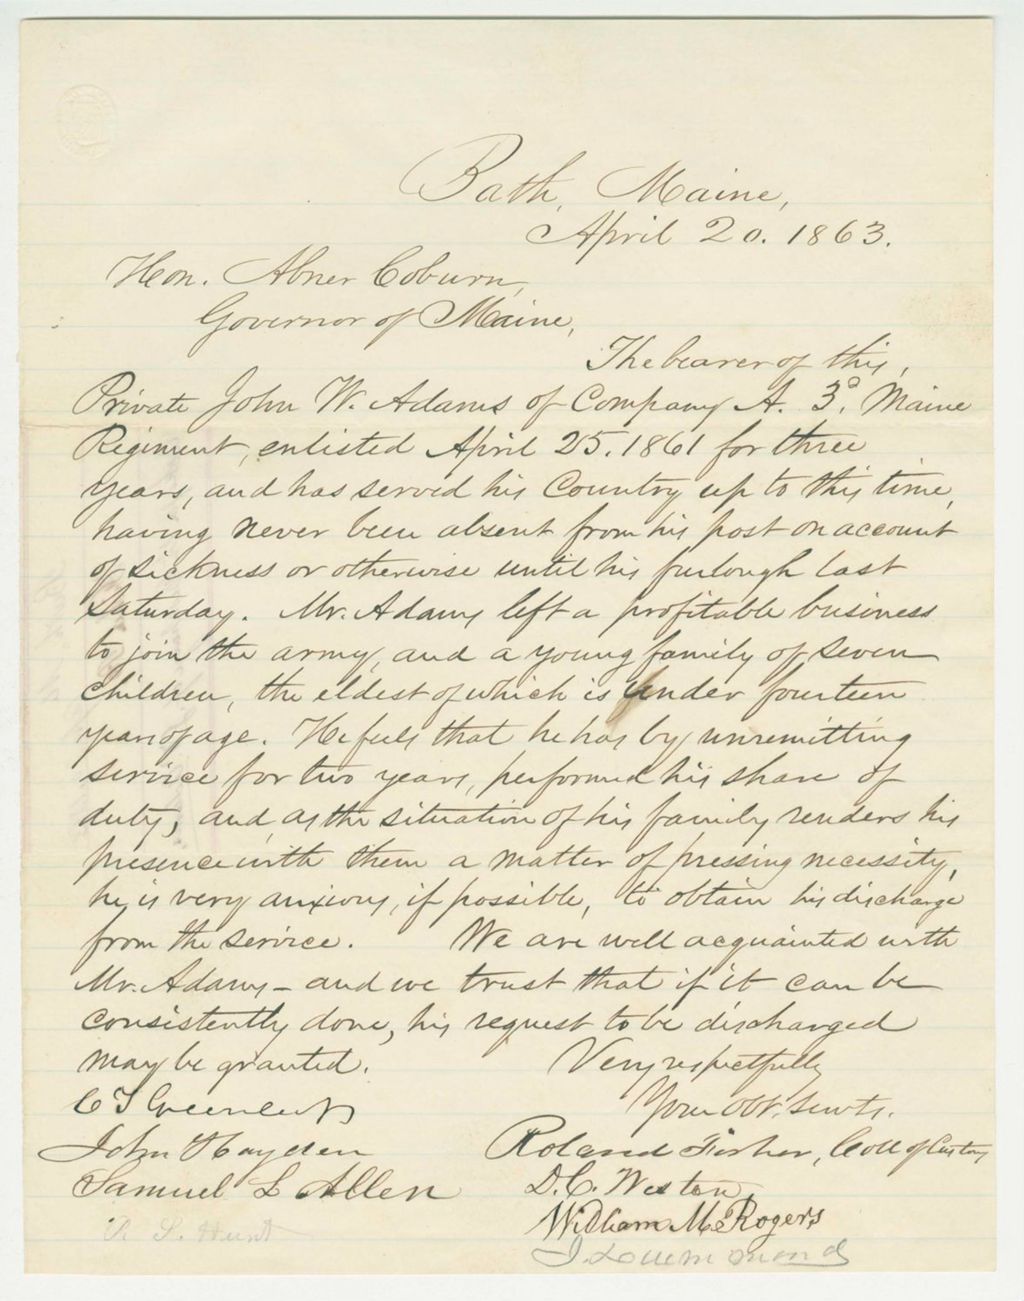 Bath, Maine,
April 20. 1863.
Hon. Abner Coburn,
Governor of Maine,
The bearer of this,
Private John W. Adams of Company A. 3d. Maine
Regiment, enlisted April 25. 1861 for three
years, and has served his Country up to this time,
having never been absent from his post on account
of sickness or otherwise until his furlough last
Saturday. Mr. Adams left a profitable business
to join the army, and a young family of seven
children, the eldest of which is under fourteen
years of age. He feels that he has by unremitting
service for two years, performed his share of
duty, and, as the situation of his family renders his
presence with them a matter of pressing necessity,
he is very anxious, if possible, to obtain his discharge
from the service. We are well acquainted with
Mr. Adams - and we trust that if it can be
consistently done, his request to be discharged
may be granted.
Very respectfully
Your Obt. Servts.
C T Greenleaf
John Hayden
Samuel L Allen
R S. Hunt
Roland Fisher, Coll of Customs
D. C. Weston,
William M. Rogers